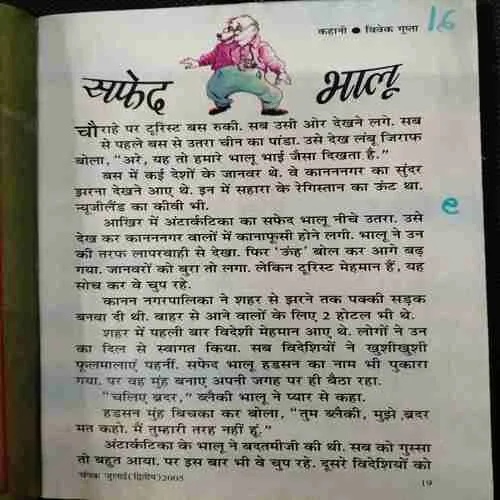 कहानी ● विवेक गुप्ता
16
सफेद भालू
चौराहे पर टूरिस्ट बस रुकी. सब उसी ओर देखने लगे. सब
से पहले बस से उतरा चीन का पांडा. उसे देख लंबू जिराफ
बोला, “अरे, यह तो हमारे भालू भाई जैसा दिखता है.”
बस में कई देशों के जानवर थे. वे काननगर का सुंदर
झरना देखने आए थे. इन में सहारा के रेगिस्तान का ऊंट था.
न्यूजीलैंड का कीवी भी.
आखिर में अंटार्कटिका का सफेद भालू नीचे उतरा. उसे
देख कर काननगर वालों में कानाफूसी होने लगी. भालू ने उन
की तरफ लापरवाही से देखा. फिर ‘ऊंह’ बोल कर आगे बढ़
गया. जानवरों को बुरा तो लगा. लेकिन टूरिस्ट मेहमान हैं, यह
सोच कर वे चुप रहे.
कानन नगरपालिका ने शहर से झरने तक पक्की सड़क
बनवा दी थी. बाहर से आने वालों के लिए 2 होटल भी थे.
शहर में पहली बार विदेशी मेहमान आए थे. लोगों ने उन
का दिल से स्वागत किया. सब विदेशियों ने खुशीखुशी
फूलमालाएं पहनीं. सफेद भालू हडसन का नाम भी पुकारा
गया. पर वह मुंह बनाए अपनी जगह पर ही बैठा रहा.
“चलिए ब्रदर,” ब्लैकी भालू ने प्यार से कहा.
हडसन मुंह बिचका कर बोला, “तुम ब्लैकी, मुझे ब्रदर
मत कहो. मैं तुम्हारी तरह नहीं हूं.”
अंटार्कटिका के भालू ने बदतमीजी की थी. सब को गुस्सा
तो बहुत आया. पर इस बार भी वे चुप रहे. दूसरे विदेशियों को
चंपक जुलाई (द्वितीय) 2005
19
e